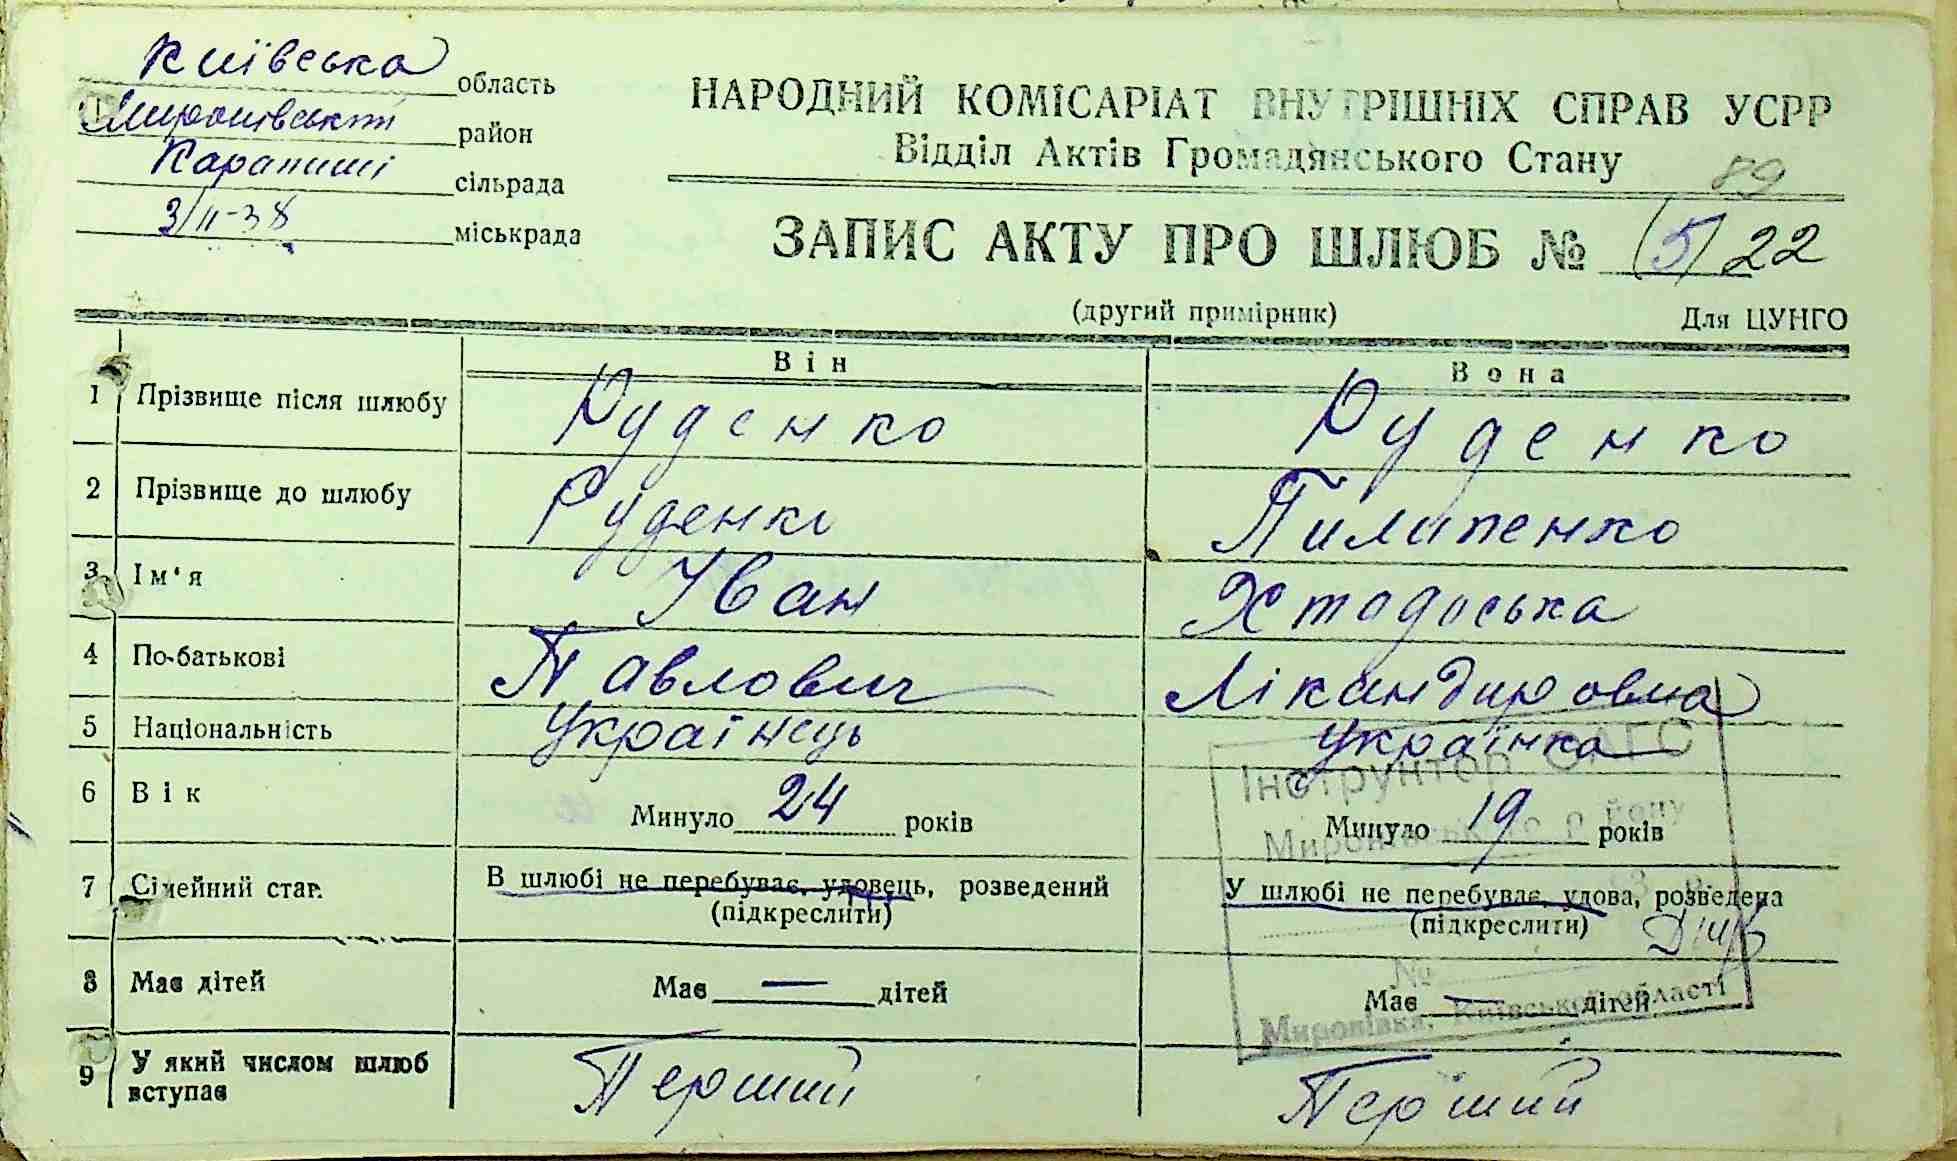 Київська область
Миронівський район
Карапиші сільрада
3/II-38 міськрада
НАРОДНИЙ КОМІСАРІАТ ВНУТРІШНІХ СПРАВ УСРР
Відділ Актів Громадянського Стану
89
ЗАПИС АКТУ ПРО ШЛЮБ № (5)/22
(другий примірник) Для ЦУНГО
Він Вона
1 Прізвище після шлюбу Руденко Руденко
2 Прізвище до шлюбу Руденко Пилипенко
3 Ім'я Іван Хтодоська
4 По-батькові Павлович Лікандировна
5 Національність Українець Українка
6 Вік Минуло 24 років Минуло 19 років
7 Сімейний стан. В шлюбі не перебуває, удовець, розведений У шлюбі не перебуває, удова, розведена
(підкреслити) (підкреслити)
8 Має дітей Має — дітей Має — дітей
9 У який числом шлюб вступає Перший Перший
Інструктор ЗАГС
Миронівського району
№
Миронівка, Київської області